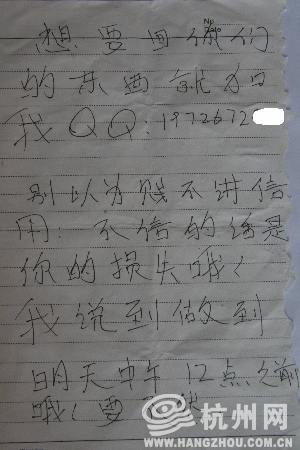 想要回你们
的东西就加
我QQ:1972672
别以为贼不讲信
用:不信的话是
你的损失哦!
我说到做到
明天中午12点之前
哦!要
杭州网
WWW.HANGZHOU.COM.CN